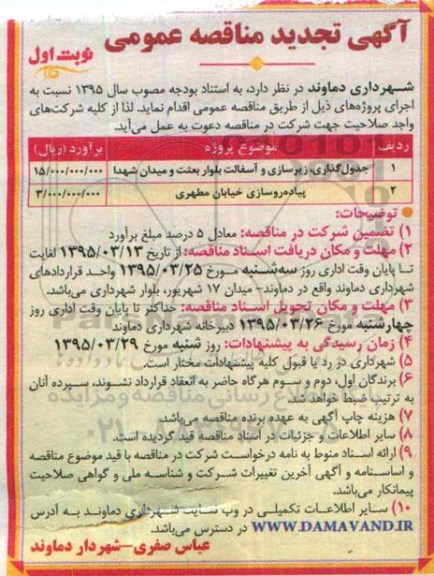 آگهی تجدید مناقصه عمومی
نوبت اول
شهرداری دماوند در نظر دارد، به استناد بودجه مصوب سال ۱۳۹۵ نسبت به
اجرای پروژه‌های ذیل از طریق مناقصه عمومی اقدام نماید. لذا از کلیه شرکت‌های
واجد صلاحیت جهت شرکت در مناقصه دعوت به عمل می‌آید.
ردیف موضوع پروژه برآورد (ریال)
۱ جدول‌گذاری، زیرسازی و آسفالت بلوار بعثت و میدان شهدا ۱۵/۰۰۰/۰۰۰/۰۰۰
۲ پیاده‌روسازی خیابان مطهری ۳/۰۰۰/۰۰۰/۰۰۰
توضیحات:
۱) تضمین شرکت در مناقصه: معادل ۵ درصد مبلغ برآورد
۲) مهلت و مکان دریافت اسناد مناقصه: از تاریخ ۱۳۹۵/۰۳/۱۳ لغایت
تا پایان وقت اداری روز سه‌شنبه مورخ ۱۳۹۵/۰۳/۲۵ واحد قراردادهای
شهرداری دماوند واقع در دماوند- میدان ۱۷ شهریور، بلوار شهرداری می‌باشد.
۳) مهلت و مکان تحویل اسناد مناقصه: حداکثر تا پایان وقت اداری روز
چهارشنبه مورخ ۱۳۹۵/۰۳/۲۶ دبیرخانه شهرداری دماوند
۴) زمان رسیدگی به پیشنهادات: روز شنبه مورخ ۱۳۹۵/۰۳/۲۹
۵) شهرداری در رد یا قبول کلیه پیشنهادات مختار است.
۶) برندگان اول، دوم و سوم هرگاه حاضر به انعقاد قرارداد نشوند، سپرده آنان
به ترتیب ضبط خواهد شد.
۷) هزینه چاپ آگهی به عهده برنده مناقصه می‌باشد.
۸) سایر اطلاعات و جزئیات در اسناد مناقصه قید گردیده است.
۹) ارائه اسناد منوط به نامه درخواست شرکت در مناقصه با قید موضوع مناقصه
و اساسنامه و آگهی آخرین تغییرات شرکت و شناسه ملی و گواهی صلاحیت
پیمانکار می‌باشد.
۱۰) سایر اطلاعات تکمیلی در وب سایت شهرداری دماوند به آدرس
WWW.DAMAVAND.IR در دسترس می‌باشد.
عباس صفری-شهردار دماوند